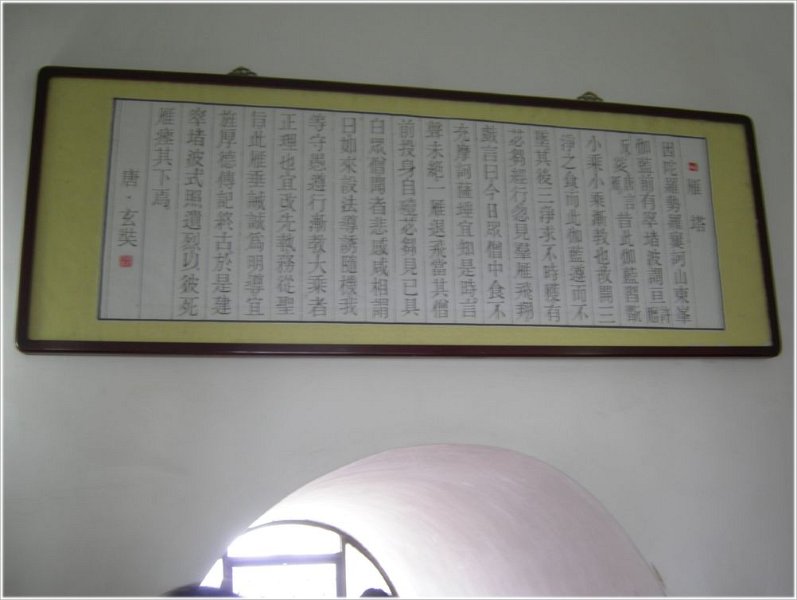 雁塔
因陀羅勢羅窶訶山東峯
伽藍前有窣堵波謂亘許贈
反娑唐言雁昔此伽藍習翫
小乘小乘漸教也故開三
淨之食而此伽藍遵而不
墜其後三淨求不時獲有
苾芻經行忽見羣雁飛翔
戲言曰今日眾僧中食不
充摩訶薩埵宜知是時言
聲未絕一雁退飛當其僧
前投身自殪苾芻見已具
白眾僧聞者悲感咸相謂
曰如來設法導誘隨機我
等守愚遵行漸教大乘者
正理也宜改先執務從聖
旨此雁垂誡誠爲明導宜
旌厚德傳記終古於是建
窣堵波式照遺烈功彼死
雁瘞其下焉
唐·玄奘